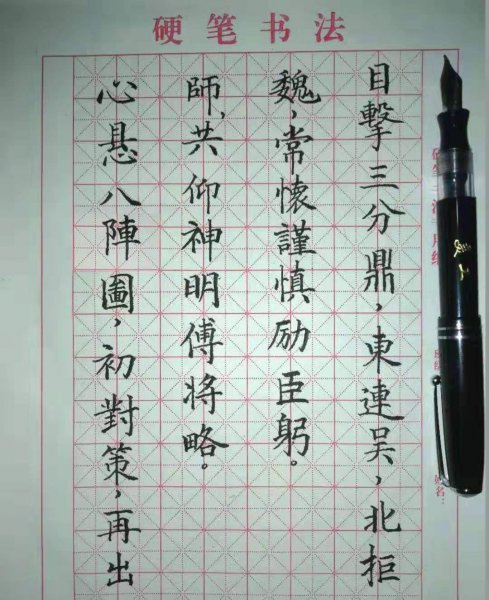 硬笔书法
目擊三分鼎，東連吳，北拒
魏，常懷謹慎励臣躬。
心悬八陣圖，初對策，再出
師，共仰神明傅将略。